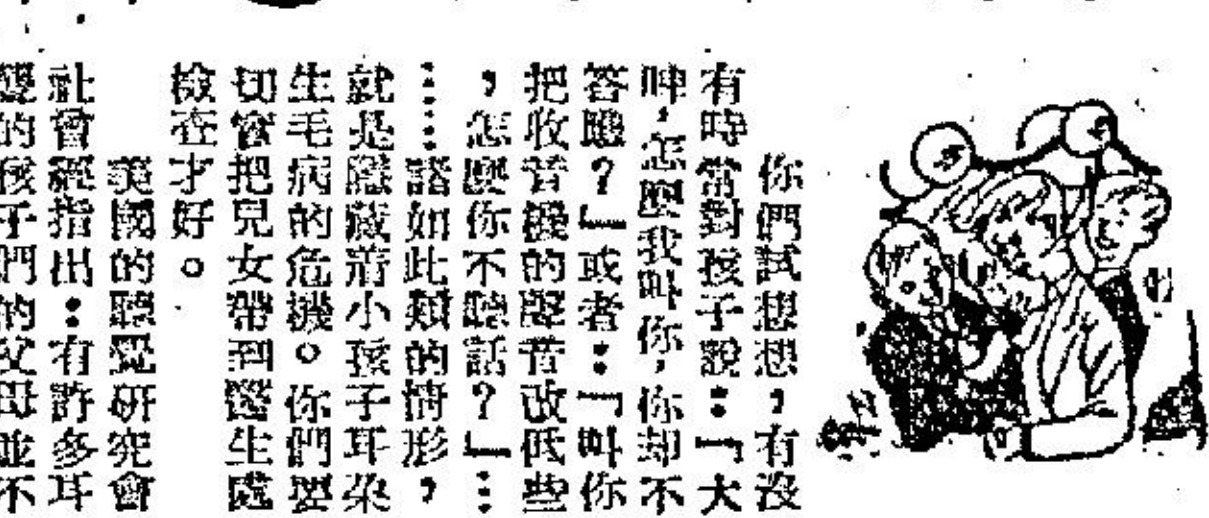 你們試想想，有沒
有時常對孩子說：「大
呻，怎麼我叫你，你却不
答應？」或者：「叫你
把收音機的聲音改低些
，怎麼你不聽話？」…
……諸如此類的情形，
就是隱藏着小孩子耳朶
生毛病的危機。你們要
切實把兒女帶到醫生處
檢查才好。
美國的聽覺研究會
社曾經指出：有許多耳
聾的孩子們的父母並不